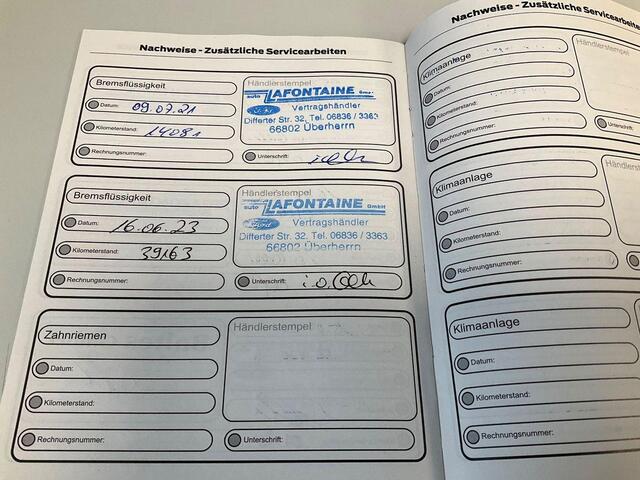 Nachweise - Zusätzliche Servicearbeiten
Bremsflüssigkeit
Händlerstempel
auto LAFONTAINE GmbH
Ford Vertragshändler
Differter Str. 32, Tel. 06836 / 3363
66802 Überherrn
Datum: 09.07.21
Kilometerstand: 14081
Rechnungsnummer:
Unterschrift:
Bremsflüssigkeit
Händlerstempel
auto LAFONTAINE GmbH
Ford Vertragshändler
Differter Str. 32, Tel. 06836 / 3363
66802 Überherrn
Datum: 16.06.23
Kilometerstand: 39163
Rechnungsnummer:
Unterschrift: i.o.
Zahnriemen
Händlerstempel
Datum:
Kilometerstand:
Rechnungsnummer:
Unterschrift:
Nachweise - Zusätzliche Servicearbeiten
Klimaanlage
Händlerstempel
Datum:
Kilometerstand:
Rechnungsnummer:
Klimaanlage
Datum:
Kilometerstand:
Rechnungsnummer:
Klimaanlage
Datum:
Kilometerstand:
Rechnungsnummer: